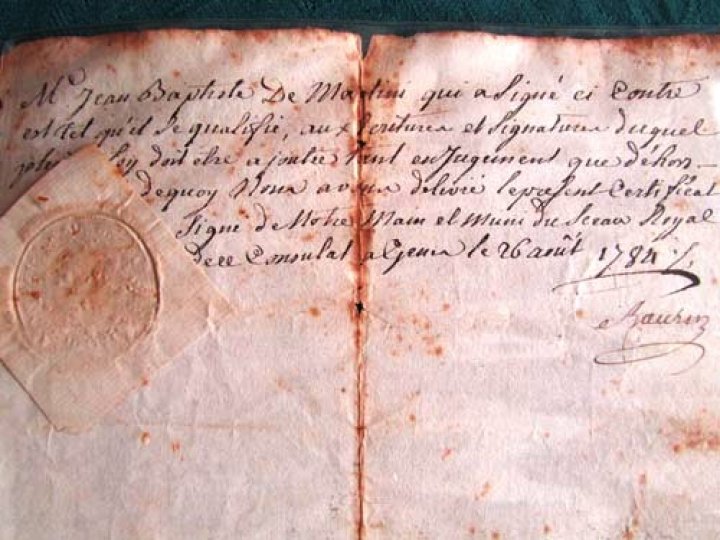 Mr. Jean Baptiste De Martini qui a Signé ci Contre
est tel qu'il se qualifie, aux Ecritures et Signatures duquel
foy doit être ajoutée tant en Jugement que déhors
dequoy Nous avons délivré le présent Certificat
Signé de Notre Main et muni du Sceau Royal
De ce Consulat a Genes le 26 août 1784